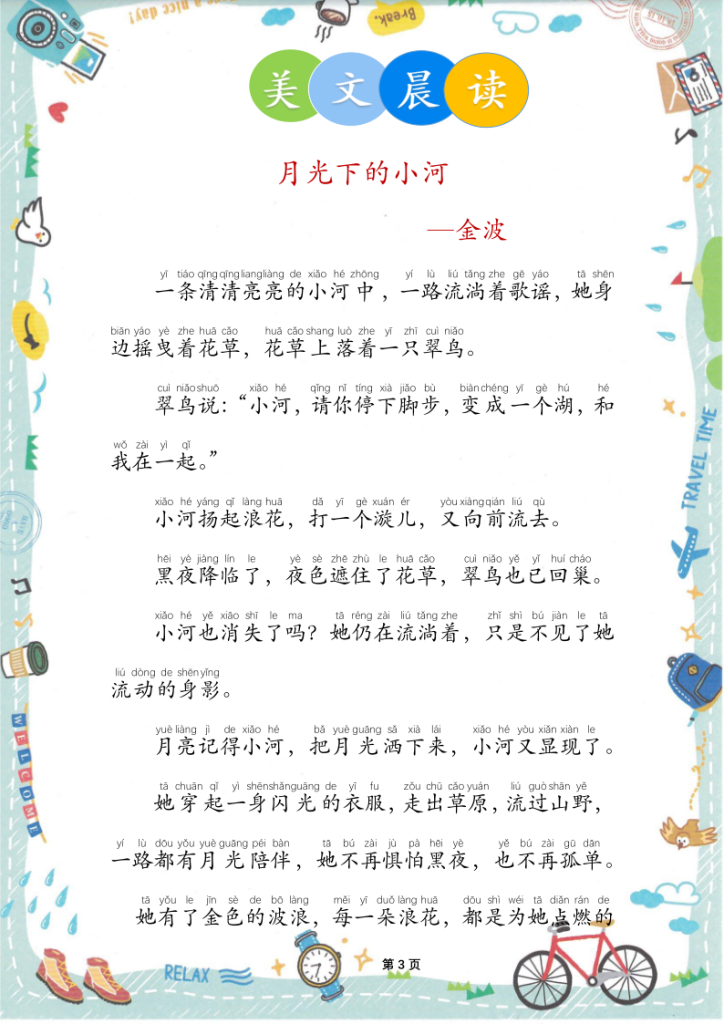 a nice day!
Break.
美文晨读
月光下的小河
—金波
yī tiáo qīng qīng liang liàng de xiǎo hé zhōng yí lù liú tǎng zhe gē yáo tā shēn
一条清清亮亮的小河中，一路流淌着歌谣，她身
biān yáo yè zhe huā cǎo huā cǎo shang luò zhe yī zhī cuì niǎo
边摇曳着花草，花草上落着一只翠鸟。
cuì niǎo shuō xiǎo hé qǐng nǐ tíng xià jiǎo bù biàn chéng yí gè hú hé
翠鸟说：“小河，请你停下脚步，变成一个湖，和
wǒ zài yì qǐ
我在一起。”
xiǎo hé yáng qǐ làng huā dǎ yī gè xuán ér yòu xiàng qián liú qù
小河扬起浪花，打一个漩儿，又向前流去。
hēi yè jiàng lín le yè sè zhē zhù le huā cǎo cuì niǎo yě yǐ huí cháo
黑夜降临了，夜色遮住了花草，翠鸟也已回巢。
xiǎo hé yě xiāo shī le ma tā réng zài liú tǎng zhe zhǐ shì bú jiàn le tā
小河也消失了吗？她仍在流淌着，只是不见了她
liú dòng de shēn yǐng
流动的身影。
yuè liàng jì de xiǎo hé bǎ yuè guāng sǎ xià lái xiǎo hé yòu xiǎn xiàn le
月亮记得小河，把月光洒下来，小河又显现了。
tā chuān qǐ yì shēn shǎn guāng de yī fu zǒu chū cǎo yuán liú guò shān yě
她穿起一身闪光的衣服，走出草原，流过山野，
yí lù dōu yǒu yuè guāng péi bàn tā bú zài jù pà hēi yè yě bú zài gū dān
一路都有月光陪伴，她不再惧怕黑夜，也不再孤单。
tā yǒu le jīn sè de bō làng měi yī duǒ làng huā dōu shì wéi tā diǎn rán de
她有了金色的波浪，每一朵浪花，都是为她点燃的
TRAVEL TIME
WELCOME
RELAX
第 3 页